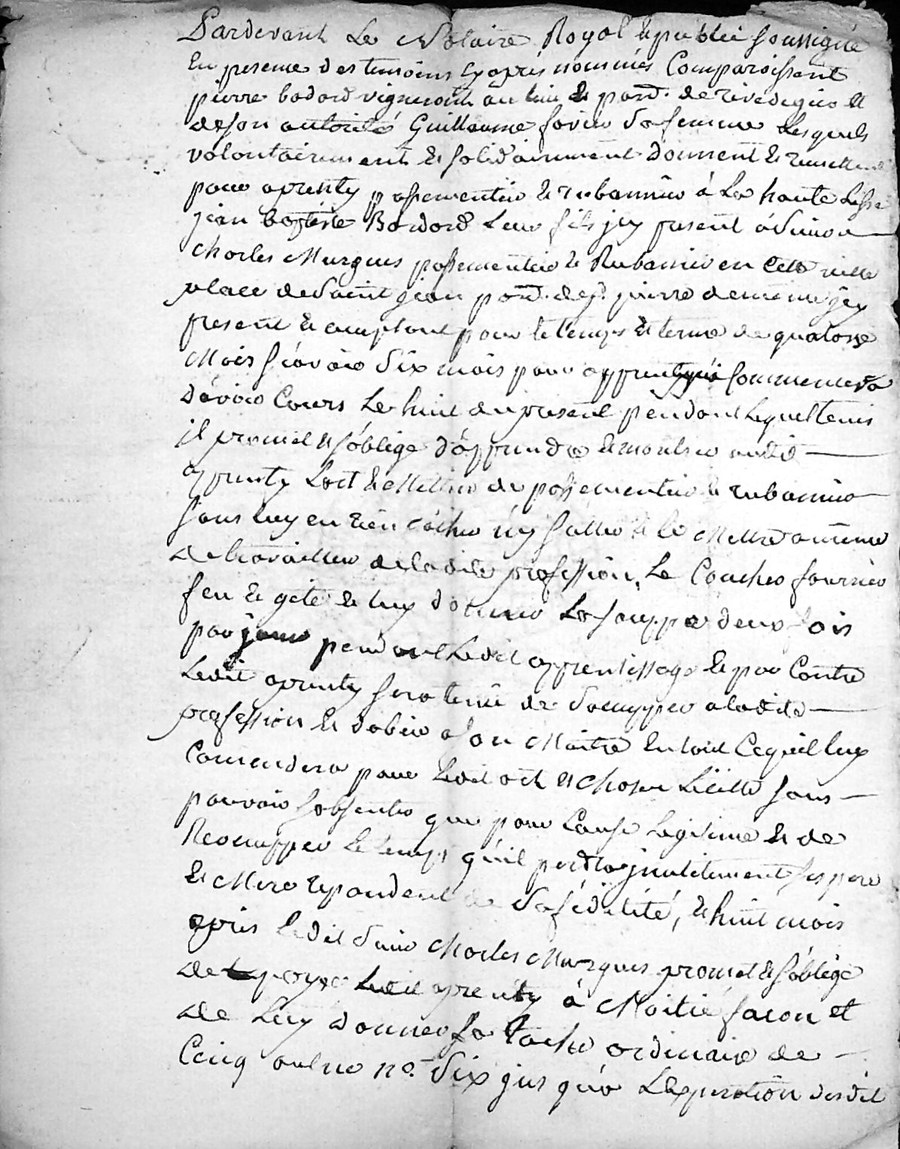 Pardevant Le Notaire Royal & public soussigné
En presence des temoins cy apres nommés Comparoissent
pierre bodard vigneron au lieu & par. de rivedegier &
de son autorité Guillaume favier Sa femme Lesquels
volontairement & solidairement donnent & remettent
pour aprenty passementier & rubannier à La haute Lisse
jean baptiste Bodard Leur fils jcy present à Simon
Charles Murgues passementier & Rubannier en Cette ville
place de Saint jean par. de st. pierre de meme jcy
present & acceptant pour le temps & terme de quatorze
Mois sçavoir Six mois pour apprentissé Commencera
d'avoir Cours Le huit du present pendant Lequel tems
jl promet & s'oblige d'apprendre & montrer audit
aprenty L'art & Mettier de passementier & rubannier
sans luy en rien cacher ny celler & le Mettre a meme
de travailler de ladite profession, Le Coucher fournir
feu & gite & luy donner La souppe deux fois
par jour pendant Ledit apprentissage & par Contre
Ledit aprenty sera tenu de s'occupper a ladite
profession & d'obeir a son Maitre En tout Ce qu'il luy
Comandera pour Ledit art & chose Licitte sans
pouvoir s'absenter que pour Cause Legitime & de
Recoupper Le temps qu'il perdra jnutilement ses pere
& Mere repondent de Sa fidelité, & huit mois
apris Ledit Simon Charles Murgues promet & s'oblige
de payer Ledit aprenty à Moitié facon et
de Luy donner sa tache ordinaire de
Cinq aulne no. Six jus qu'a L'expiration desdit